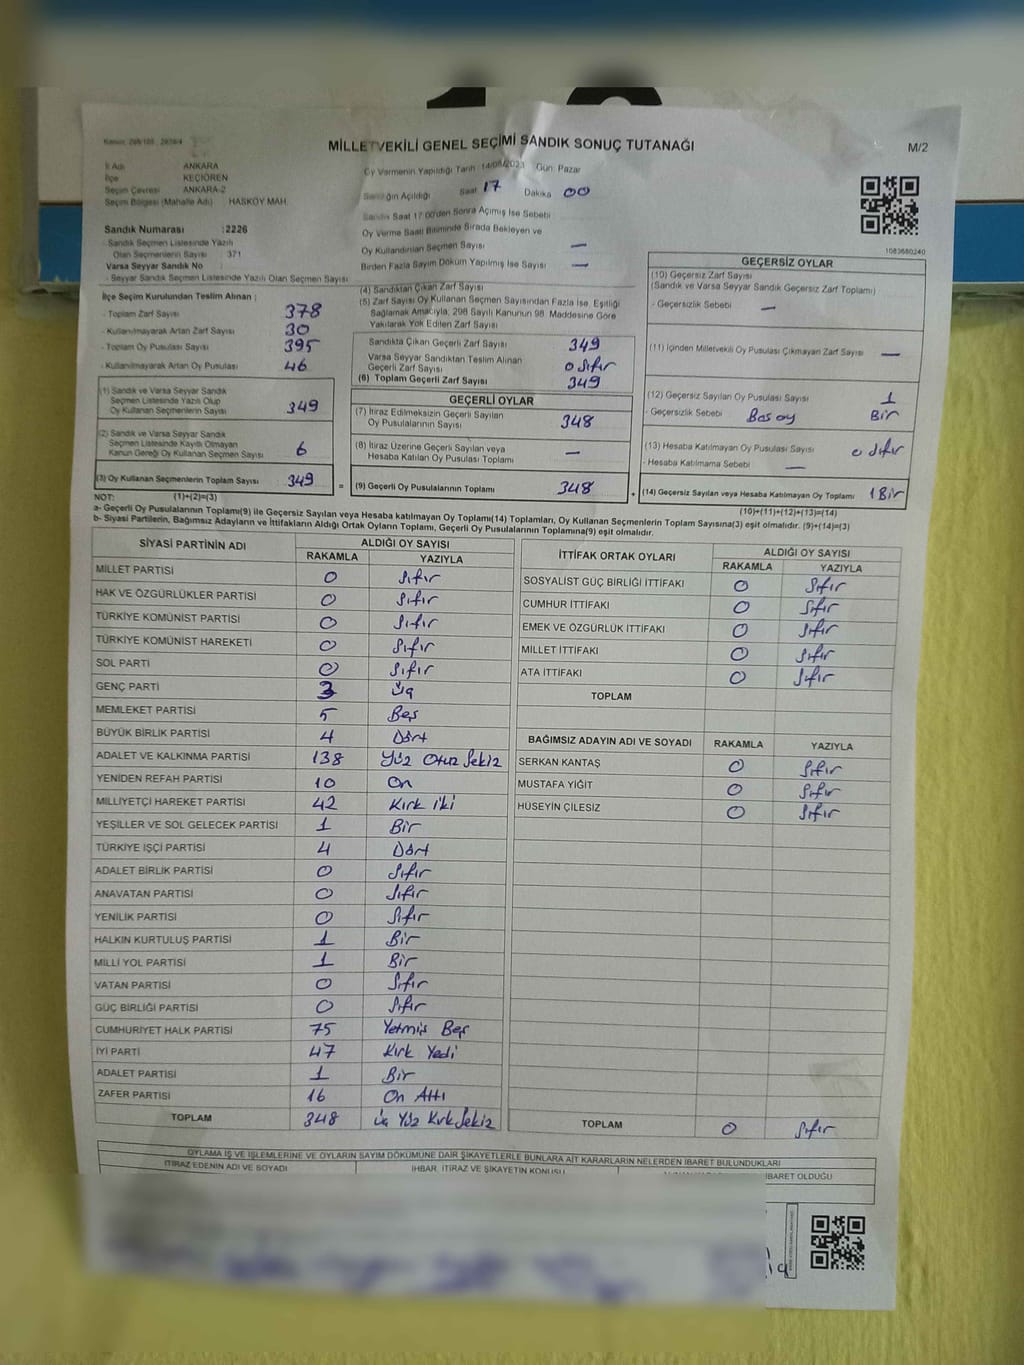 MİLLETVEKİLİ GENEL SEÇİMİ SANDIK SONUÇ TUTANAĞI
M/2
İl Adı ANKARA
İlçe KEÇİÖREN
Seçim Çevresi ANKARA-2
Seçim Bölgesi (Mahalle Adı) HASKÖY MAH.
Sandık Numarası :2226
- Sandık Seçmen Listesinde Yazılı
Olan Seçmenlerin Sayısı 371
Varsa Seyyar Sandık No :
- Seyyar Sandık Seçmen Listesinde Yazılı Olan Seçmen Sayısı
Oy Vermenin Yapıldığı Tarih Gün: Pazar
Sandığın Açıldığı Saat 17 Dakika 00
Sandık Saat 17.00'den Sonra Açılmış İse Sebebi
Oy Verme Saati Bitiminde Sırada Bekleyen ve
Oy Kullandırılan Seçmen Sayısı —
Birden Fazla Sayım Döküm Yapılmış İse Sayısı —
1083680240
İlçe Seçim Kurulundan Teslim Alınan ;
- Toplam Zarf Sayısı 378
- Kullanılmayarak Artan Zarf Sayısı 30
- Toplam Oy Pusulası Sayısı 395
- Kullanılmayarak Artan Oy Pusulası 46
(1) Sandık ve Varsa Seyyar Sandık
Seçmen Listesinde Yazılı Olup
Oy Kullanan Seçmenlerin Sayısı 349
(2) Sandık ve Varsa Seyyar Sandık
Seçmen Listesinde Kayıtlı Olmayan
Kanun Gereği Oy Kullanan Seçmen Sayısı 6
(3) Oy Kullanan Seçmenlerin Toplam Sayısı 349
(4) Sandıktan Çıkan Zarf Sayısı
(5) Zarf Sayısı Oy Kullanan Seçmen Sayısından Fazla İse, Eşitliği
Sağlamak Amacıyla, 298 Sayılı Kanunun 98. Maddesine Göre
Yakılarak Yok Edilen Zarf Sayısı
Sandıkta Çıkan Geçerli Zarf Sayısı 349
Varsa Seyyar Sandıktan Teslim Alınan
Geçerli Zarf Sayısı 0 Sıfır
(6) Toplam Geçerli Zarf Sayısı 349
GEÇERLİ OYLAR
(7) İtiraz Edilmeksizin Geçerli Sayılan
Oy Pusulalarının Sayısı 348
(8) İtiraz Üzerine Geçerli Sayılan veya
Hesaba Katılan Oy Pusulası Toplamı —
= (9) Geçerli Oy Pusulalarının Toplamı 348
GEÇERSİZ OYLAR
(10) Geçersiz Zarf Sayısı
(Sandık ve Varsa Seyyar Sandık Geçersiz Zarf Toplamı)
- Geçersizlik Sebebi —
(11) İçinden Milletvekili Oy Pusulası Çıkmayan Zarf Sayısı —
(12) Geçersiz Sayılan Oy Pusulası Sayısı 1
- Geçersizlik Sebebi Boş oy Bir
(13) Hesaba Katılmayan Oy Pusulası Sayısı 0 Sıfır
- Hesaba Katılmama Sebebi —
+ (14) Geçersiz Sayılan veya Hesaba Katılmayan Oy Toplamı 1 Bir
NOT: (1)+(2)=(3)
(10)+(11)+(12)+(13)=(14)
a- Geçerli Oy Pusulalarının Toplamı(9) ile Geçersiz Sayılan veya Hesaba katılmayan Oy Toplamı(14) Toplamları, Oy Kullanan Seçmenlerin Toplam Sayısına(3) eşit olmalıdır. (9)+(14)=(3)
b- Siyasi Partilerin, Bağımsız Adayların ve İttifakların Aldığı Ortak Oyların Toplamı, Geçerli Oy Pusulalarının Toplamına(9) eşit olmalıdır.
SİYASİ PARTİNİN ADI ALDIĞI OY SAYISI
RAKAMLA YAZIYLA
MİLLET PARTİSİ 0 Sıfır
HAK VE ÖZGÜRLÜKLER PARTİSİ 0 Sıfır
TÜRKİYE KOMÜNİST PARTİSİ 0 Sıfır
TÜRKİYE KOMÜNİST HAREKETİ 0 Sıfır
SOL PARTİ 0 Sıfır
GENÇ PARTİ 3 Üç
MEMLEKET PARTİSİ 5 Beş
BÜYÜK BİRLİK PARTİSİ 4 Dört
ADALET VE KALKINMA PARTİSİ 138 Yüz Otuz Sekiz
YENİDEN REFAH PARTİSİ 10 On
MİLLİYETÇİ HAREKET PARTİSİ 42 Kırk iki
YEŞİLLER VE SOL GELECEK PARTİSİ 1 Bir
TÜRKİYE İŞÇİ PARTİSİ 4 Dört
ADALET BİRLİK PARTİSİ 0 Sıfır
ANAVATAN PARTİSİ 0 Sıfır
YENİLİK PARTİSİ 0 Sıfır
HALKIN KURTULUŞ PARTİSİ 1 Bir
MİLLİ YOL PARTİSİ 1 Bir
VATAN PARTİSİ 0 Sıfır
GÜÇ BİRLİĞİ PARTİSİ 0 Sıfır
CUMHURİYET HALK PARTİSİ 75 Yetmiş Beş
İYİ PARTİ 47 Kırk Yedi
ADALET PARTİSİ 1 Bir
ZAFER PARTİSİ 16 On Altı
TOPLAM 348 Üç Yüz Kırk Sekiz
İTTİFAK ORTAK OYLARI ALDIĞI OY SAYISI
RAKAMLA YAZIYLA
SOSYALİST GÜÇ BİRLİĞİ İTTİFAKI 0 Sıfır
CUMHUR İTTİFAKI 0 Sıfır
EMEK VE ÖZGÜRLÜK İTTİFAKI 0 Sıfır
MİLLET İTTİFAKI 0 Sıfır
ATA İTTİFAKI 0 Sıfır
TOPLAM
BAĞIMSIZ ADAYIN ADI VE SOYADI RAKAMLA YAZIYLA
SERKAN KANTAŞ 0 Sıfır
MUSTAFA YİĞİT 0 Sıfır
HÜSEYİN ÇİLESİZ 0 Sıfır
TOPLAM 0 Sıfır
OYLAMA İŞ VE İŞLEMLERİNE VE OYLARIN SAYIM DÖKÜMÜNE DAİR ŞİKAYETLERLE BUNLARA AİT KARARLARIN NELERDEN İBARET BULUNDUKLARI
İTİRAZ EDENİN ADI VE SOYADI İHBAR, İTİRAZ VE ŞİKAYETİN KONUSU İBARET OLDUĞU